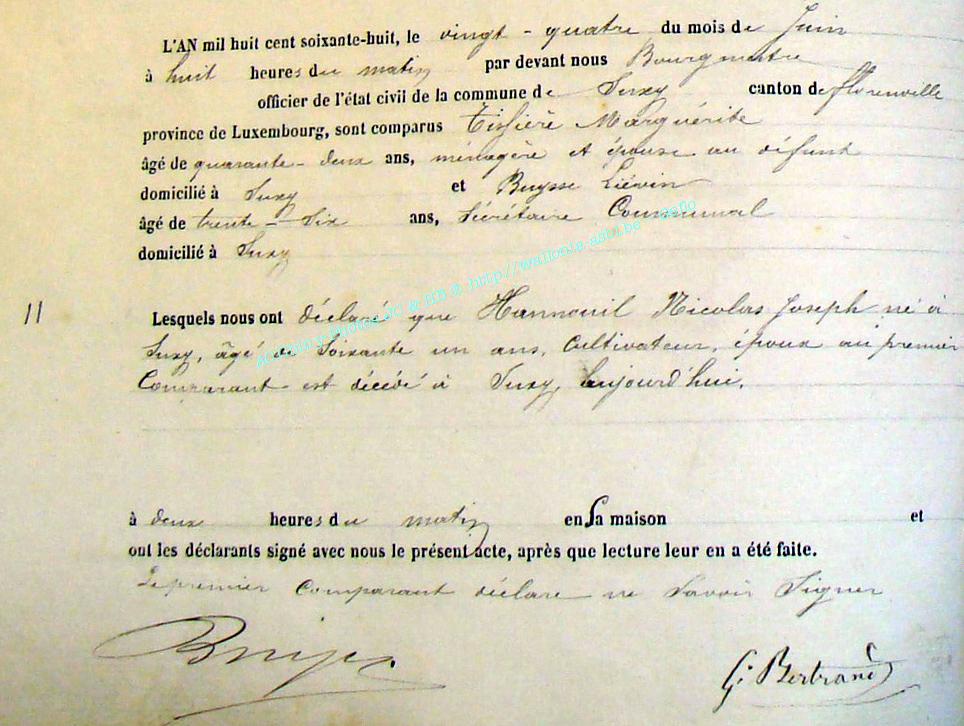 L'AN mil huit cent soixante-huit, le vingt-quatre du mois de Juin
à huit heures du matin par devant nous Bourgmestre
officier de l'état civil de la commune de Suxy canton de florenville
province de Luxembourg, sont comparus Tissière Marguérite
âgé de quarante-deux ans, ménagère et épouse au défunt
domicilié à Suxy et Buysse Liévin
âgé de trente-Six ans, Sécrétaire Communal
domicilié à Suxy
11
Lesquels nous ont déclaré que Hannouil Nicolas Joseph né à
Suxy, âgé de Soixante un ans, Cultivateur, époux au premier
Comparant est décédé à Suxy, aujourd'hui,
à deux heures du matin en Sa maison et
ont les déclarants signé avec nous le présent acte, après que lecture leur en a été faite.
Le premier Comparant déclare ne Savoir Signer
G. Bertrand